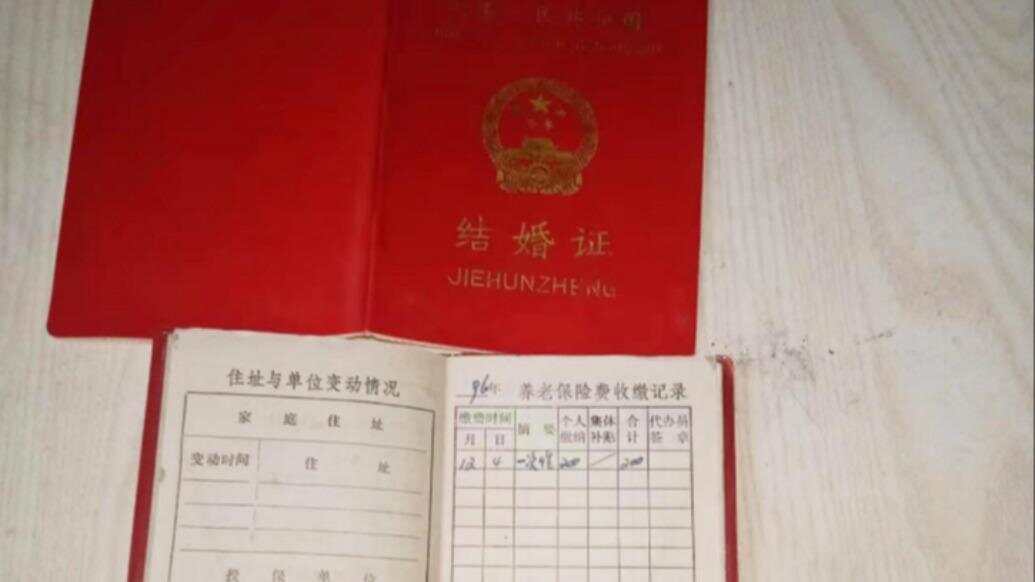 民共和国
结婚证
JIEHUNZHENG
住址与单位变动情况
家庭住址
变动时间 住址
投保单位
96年 养老保险费收缴记录
缴费时间 摘要 个人缴纳 集体补贴 合计 代办员签章
月 日
12 4 一次性 200 / 200